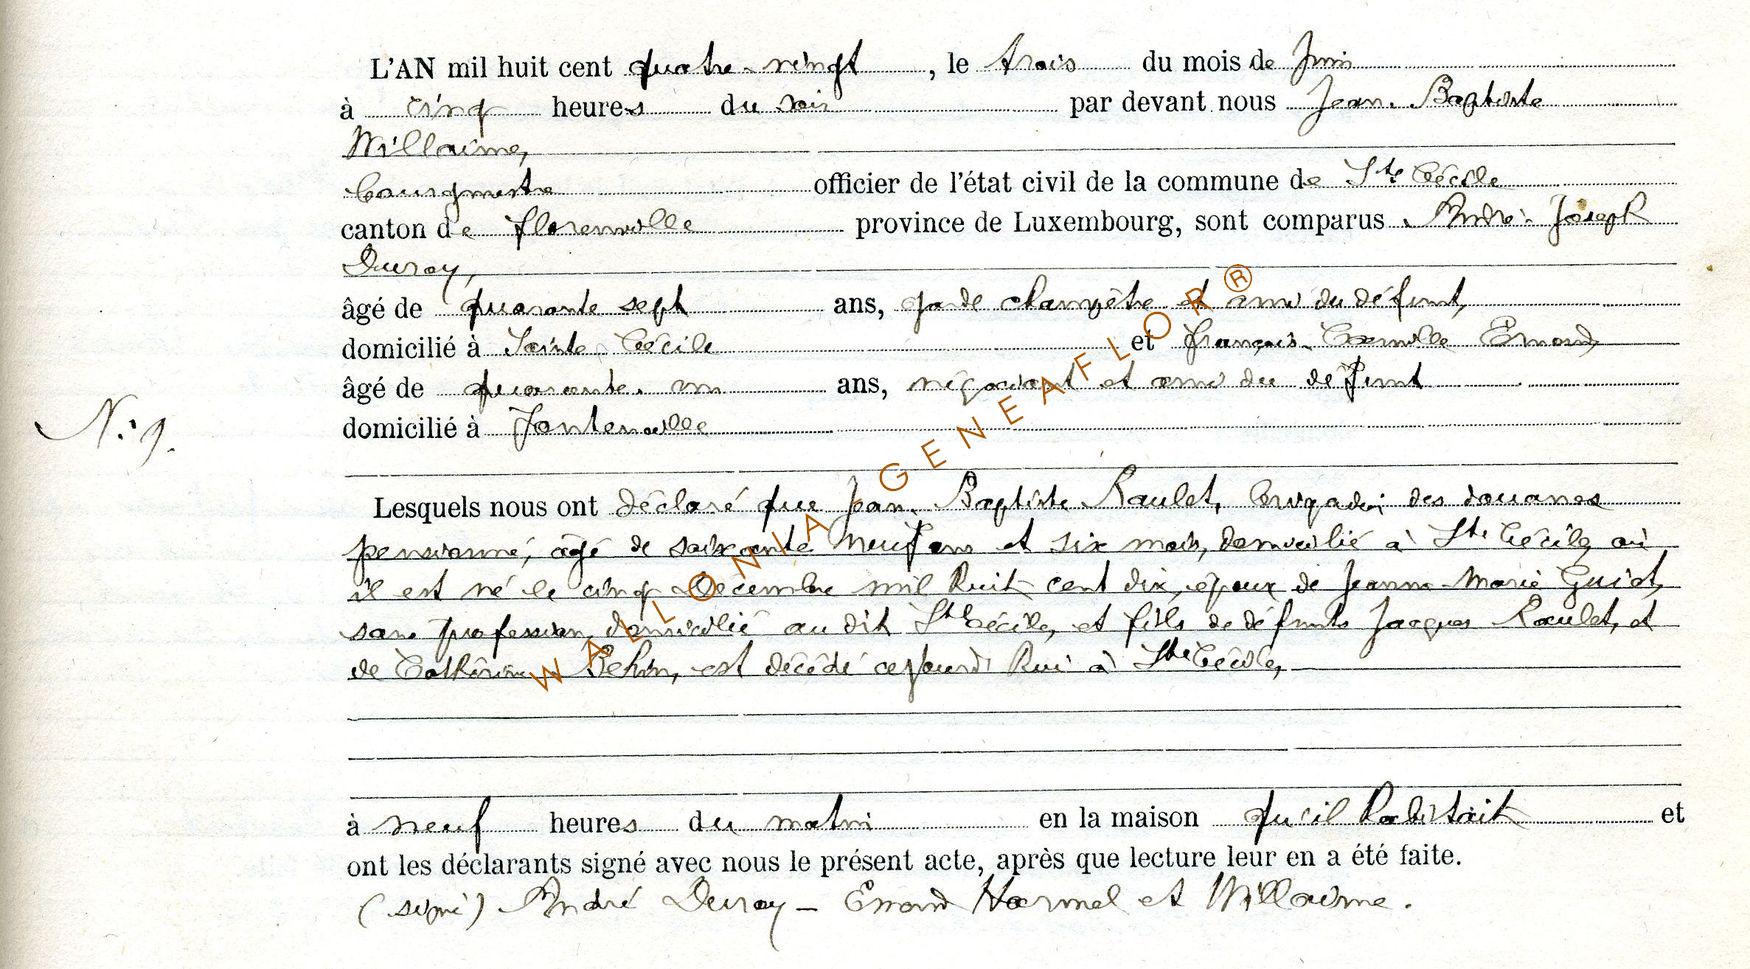 L'AN mil huit cent quatre-vingt, le trois du mois de Juin
à cinq heures du soir par devant nous Jean-Baptiste
Willaime,
bourgmestre officier de l'état civil de la commune de Ste Cécile
canton de Florenville province de Luxembourg, sont comparus André-Joseph
Duroy,
âgé de quarante sept ans, garde champêtre et ami du défunt,
domicilié à Sainte-Cécile et François-Camille Emond
âgé de quarante-un ans, négociant et ami du défunt
domicilié à Fontenoille
N° 9.
Lesquels nous ont déclaré que Jean-Baptiste Raulet, brigadier des douanes
pensionné, âgé de soixante neuf ans et six mois, domicilié à Ste Cécile où
il est né le cinq Décembre mil huit cent dix, époux de Jeanne Marie Guiot,
sans profession, domicilié au dit Ste Cécile, et fils de défunts Jacques Raulet, et
de Catherine Behin, est décédé cejourd'hui à Ste Cécile,
à neuf heures du matin en la maison qu'il habitait et
ont les déclarants signé avec nous le présent acte, après que lecture leur en a été faite.
(signé) André Duroy - Emond Harmel et Willaime.
WALLONIA GENEAFLOR®